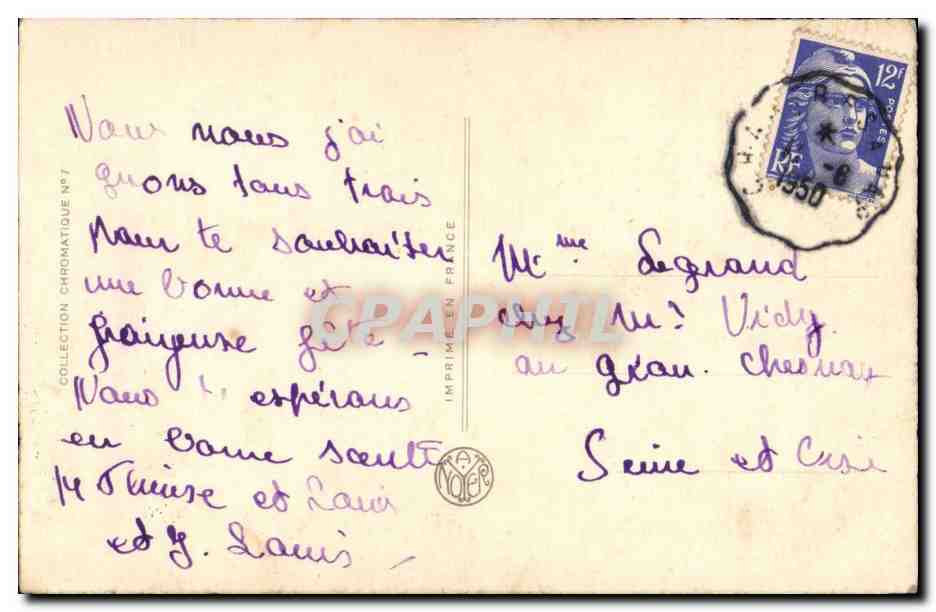 Nous nous j'ai
gnons tous trois
pour te souhaiter
une bonne et
graigeuse fête
Nous t' espérons
en bonne santé
M Thérèse et Louis
et J. Louis
COLLECTION CHROMATIQUE N° 7
IMPRIMÉ EN FRANCE
A. NOYER
12F
POSTES
RF
1950
Mme Legrand
chez Mr Vidy
au gran. Chesnay
Seine et Oise
CPAPHIL